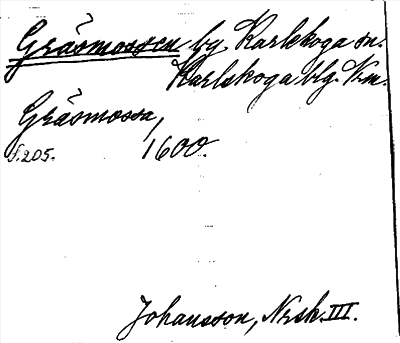 Gräsmossen by Karlskoga sn.
Karlskoga blg. Vrm.
Gräsmossa,
s. 205. 1600.
Johansson, Nrsk. III.